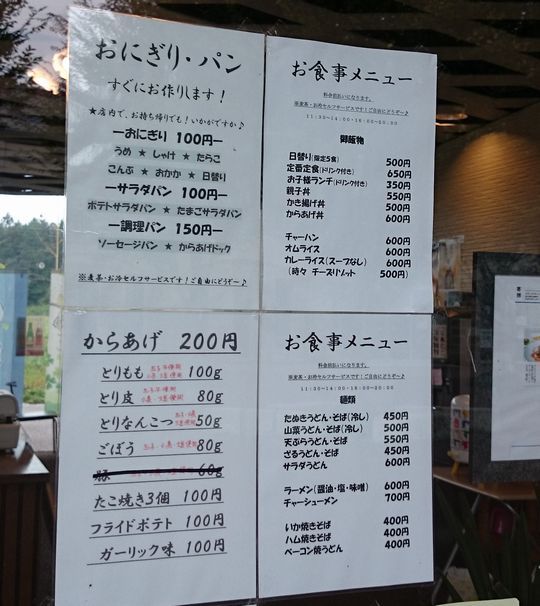 おにぎり・パン
すぐにお作りします！
★店内で、お持ち帰りでも！いかがですか♪
―おにぎり 100円―
うめ ★ しゃけ ★ たらこ
こんぶ ★ おかか ★ 日替り
―サラダパン 100円―
ポテトサラダパン ★ たまごサラダパン
―調理パン 150円―
ソーセージパン ★ からあげドック
※麦茶・お冷セルフサービスです！ご自由にどうぞ～♪
お食事メニュー
料金前払いになります。
※麦茶・お冷セルフサービスです！ご自由にどうぞ～♪
11:30～14:00・16:00～20:30
御飯物
日替り(限定5食) 500円
定番定食(ドリンク付き) 650円
お子様ランチ(ドリンク付き) 350円
親子丼 550円
かき揚げ丼 500円
からあげ丼 600円
チャーハン 600円
オムライス 600円
カレーライス(スープなし) 600円
(時々 チーズリゾット 500円)
からあげ 200円
とりもも 100g
とり皮 80g
とりなんこつ 50g
ごぼう 80g
豚 60g
たこ焼き3個 100円
フライドポテト 100円
ガーリック味 100円
お食事メニュー
料金前払いになります。
※麦茶・お冷セルフサービスです！ご自由にどうぞ～♪
麺類
たぬきうどん・そば(冷し) 450円
山菜うどん・そば(冷し) 500円
天ぷらうどん・そば 550円
ざるうどん・そば 450円
サラダうどん 600円
ラーメン(醤油・塩・味噌) 600円
チャーシューメン 700円
いか焼きそば 400円
ハム焼きそば 400円
ベーコン焼うどん 400円